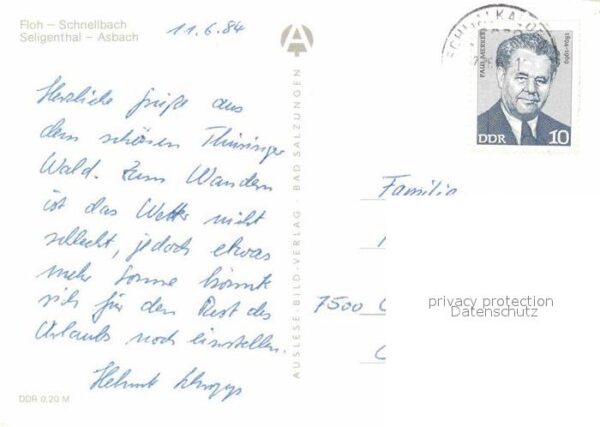 Floh – Schnellbach
Seligenthal – Asbach
11.6.84
Herzliche Grüße aus
dem schönen Thüringer
Wald. Zum Wandern
ist das Wetter nicht
schlecht, jedoch etwas
mehr Sonne könnte
sich für den Rest des
Urlaubs noch einstellen.
Helmut
DDR 0,20 M
AUSLESE-BILD-VERLAG · BAD SALZUNGEN
SCHMALKALDEN
PAUL MERKER
1894–1969
DDR 10
Familie
7500 C
privacy protection
Datenschutz